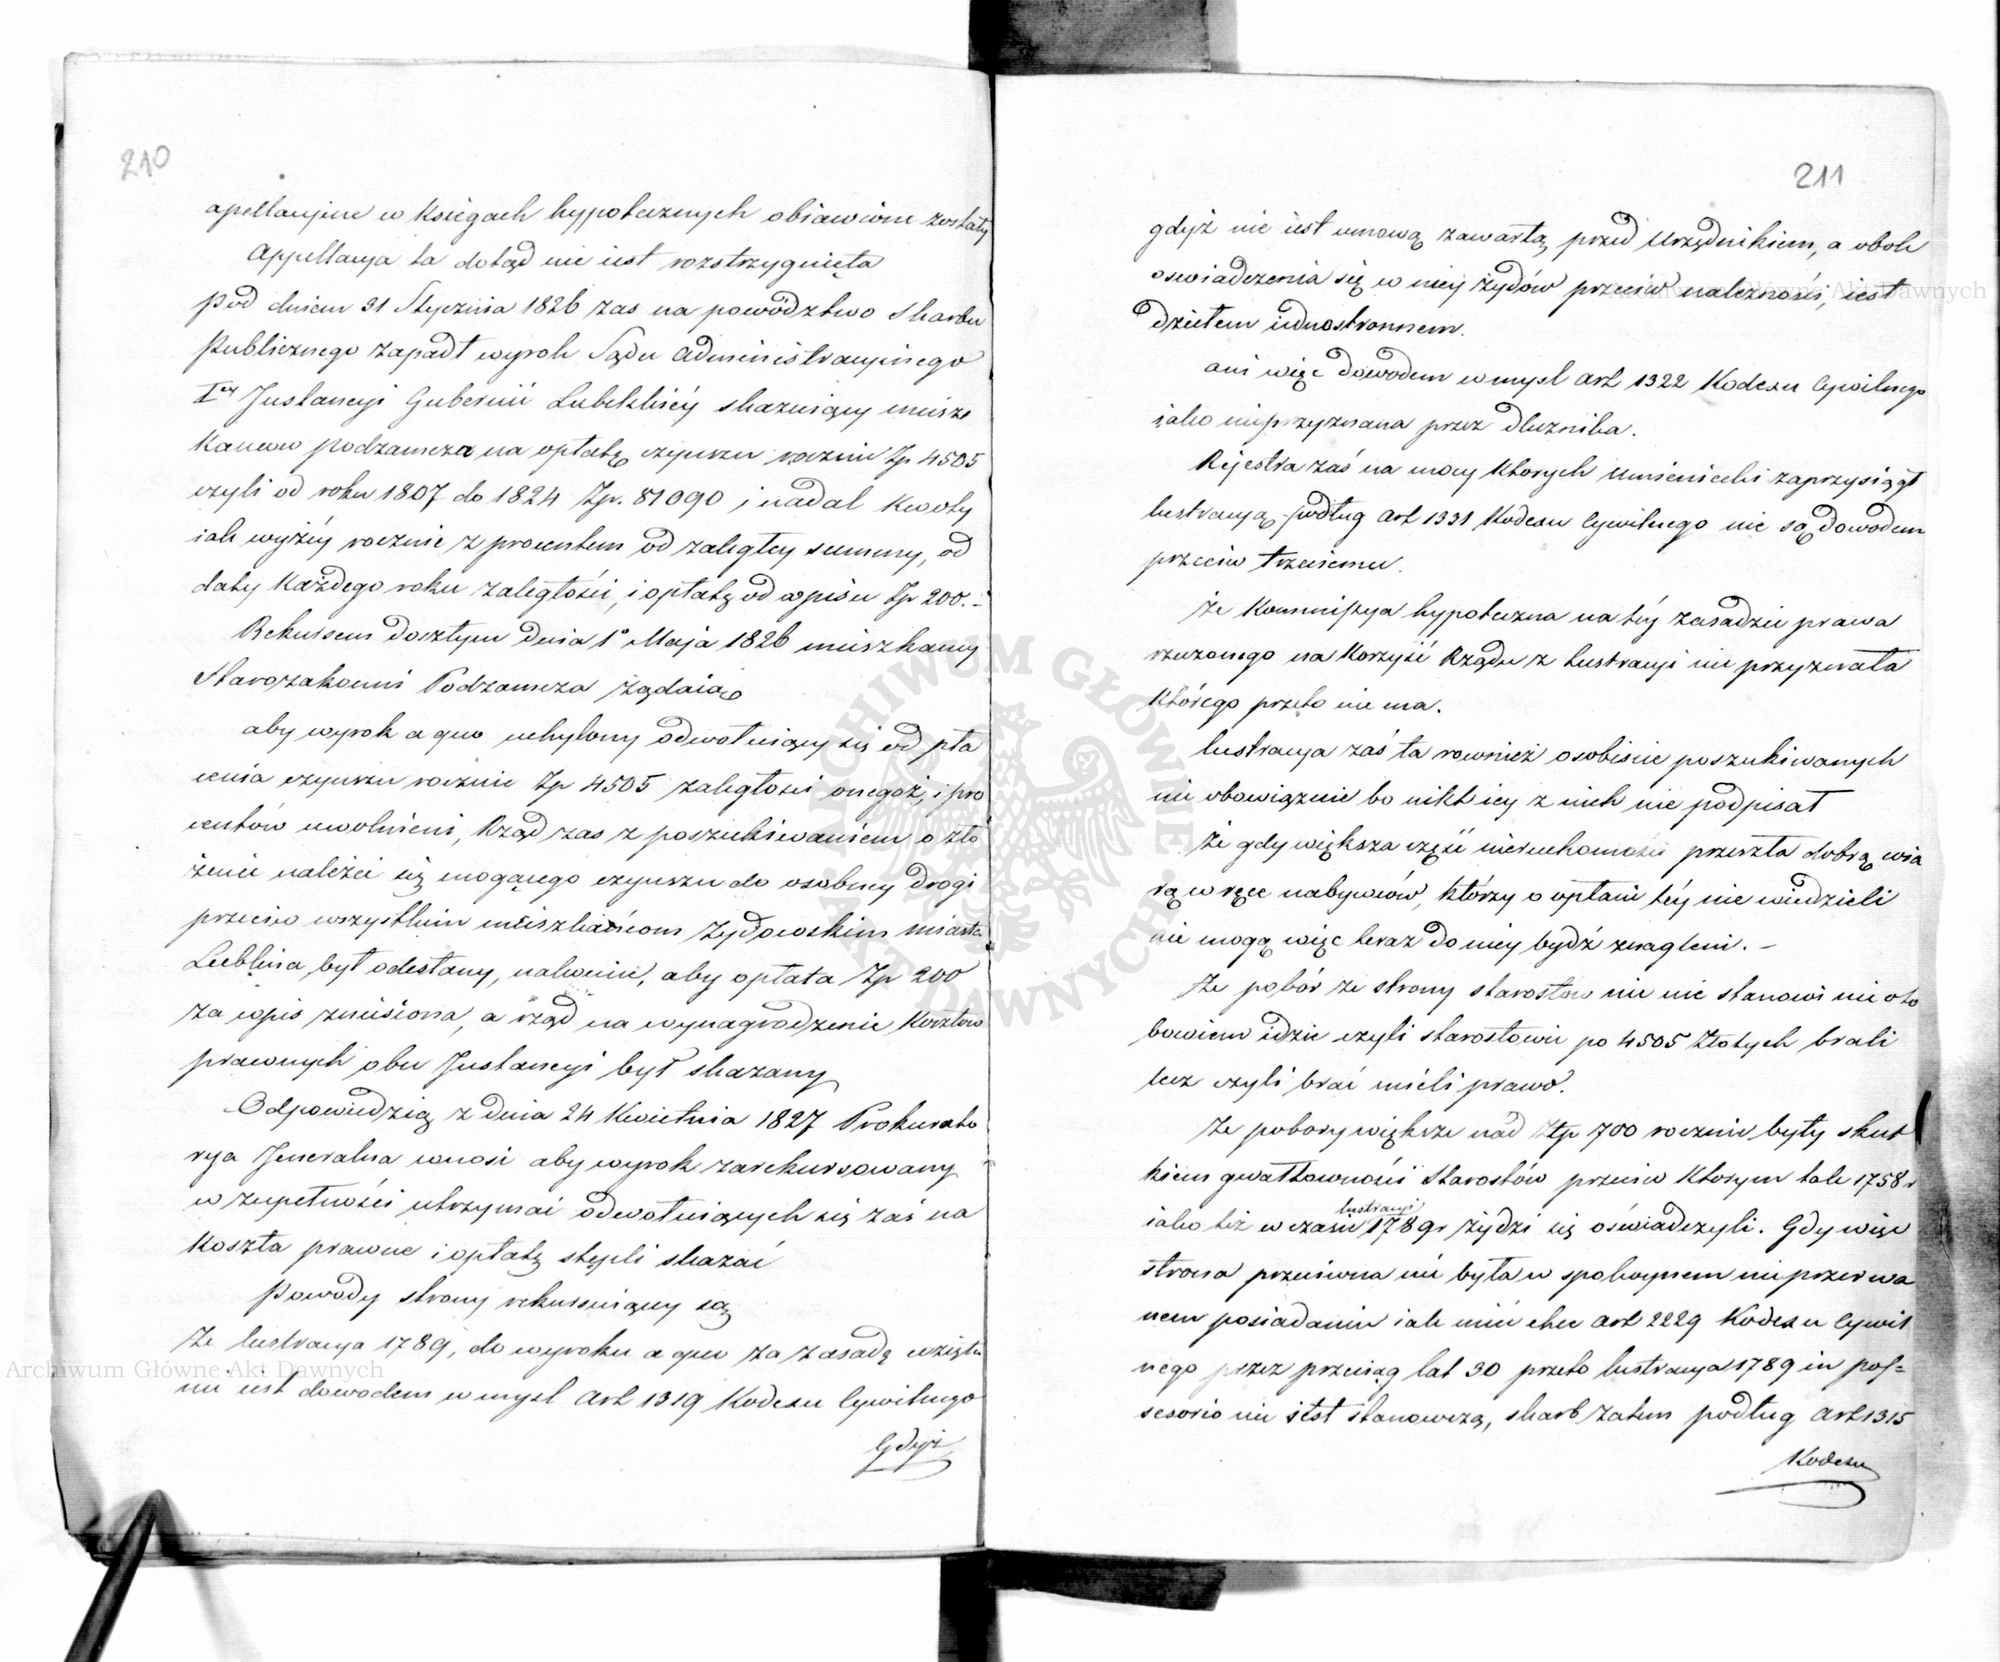 210
apellacyine w Księgach hypotecznych obiawione zostały
Appellacya ta dotąd nie iest rozstrzygnięta
pod dniem 31 Stycznia 1826 zas na powództwo Skarbu
Publicznego zapadł wyrok Sądu Administracyinego
Iey Instancyi Gubernii Lubelskiéy skazuiący miesz
kancow Podzamcza na opłatę czynszu rocznie Zp 4505
czyli od roku 1807 do 1824 Zp. 81090 i nadal kwoty
iak wyżéy rocznie z procentem od zaległey summy, od
daty każdego roku zaległości, i opłatę od wpisu Zp 200.-
Rekursem doszłym dnia 1° Maja 1826 mieszkancy
Starozakonni Podzamcza żądaią
aby wyrok a quo uchylony odwołuiący się od pła
cenia czynszu rocznie Zp 4505 zaległości onegoż, i pro
centów uwolnieni, Rząd zas z poszukiwaniem o zło
żenie należeć się mogącego czynszu do osobney drogi
przeciw wszystkim mieszkańcom Żydowskim miasta
Lublina był odesłany, nakoniec, aby opłata Zp 200
za wpis zniesiona, a rząd na wynagrodzenie kosztow
prawnych obu Instancyi był skazany
Odpowiedzią z dnia 24 Kwietnia 1827 Prokurato
rya Jeneralna wnosi aby wyrok zarekursowany
w zupełności utrzymać odwołuiących się zaś na
koszta prawne i opłatę stępli skazać
Powody strony rekursuiącey są
Że lustracya 1789, do wyroku a quo za zasadę wzięta
nie iest dowodem w mysl Art 1319 Kodexu Cywilnego
Gdyż
211
gdyż nie iest umową zawartą przed Urzędnikiem, a obok
oswiadczenia się w niey żydów przeciw należności, iest
dziełem iednostronnem.
ani więc dowodem w mysl Art 1322 Kodexu Cywilnego
iako nieprzyznana przez dłuznika.
Rejestra zaś na mocy ktorych Umieniecki zaprzysiągł
lustracyą, podług Art 1331 Kodexu Cywilnego nie są dowodem
przeciw trzeciemu.
Że Kommissya hypoteczna na téy zasadzie prawa
rzeczonego na korzyść Rządu z lustracyi nie przyznała
którego przeto nie ma.
lustracya zaś ta rownież osobiscie poszukiwanych
nie obowiązuie bo nikt iey z nich nie podpisał
Że gdy większa część nieruchomości przeszła dobrą wia
rą w ręce nabywców, którzy o opłacie téy nie wiedzieli
nie mogą więc teraz do niey bydź znagleni. -
Że pobór ze strony starostow nic nie stanowi nie oto
bowiem idzie czyli starostowie po 4505 złotych brali
lecz czyli brać mieli prawo.
Że pobory większe nad Złp 700 rocznie były skut
kiem gwałtowności Starostów przeciw ktorym tak 1758 r
lustracyi
iako też w czasie 1789 r żydzi się oświadczyli. Gdy więc
strona przeciwna nie była w spokoynem nieprzerwa
nem posiadaniu iak mieć chce Art 2229 Kodexu Cywil
nego przez przeciąg lat 30 przeto lustracya 1789 in pos=
sesorio nie iest stanowczą, skarb zatem podług Art 1315
Kodexu
Archiwum Główne Akt Dawnych
Archiwum Główne Akt Dawnych
ARCHIWUM GŁÓWNE AKT DAWNYCH